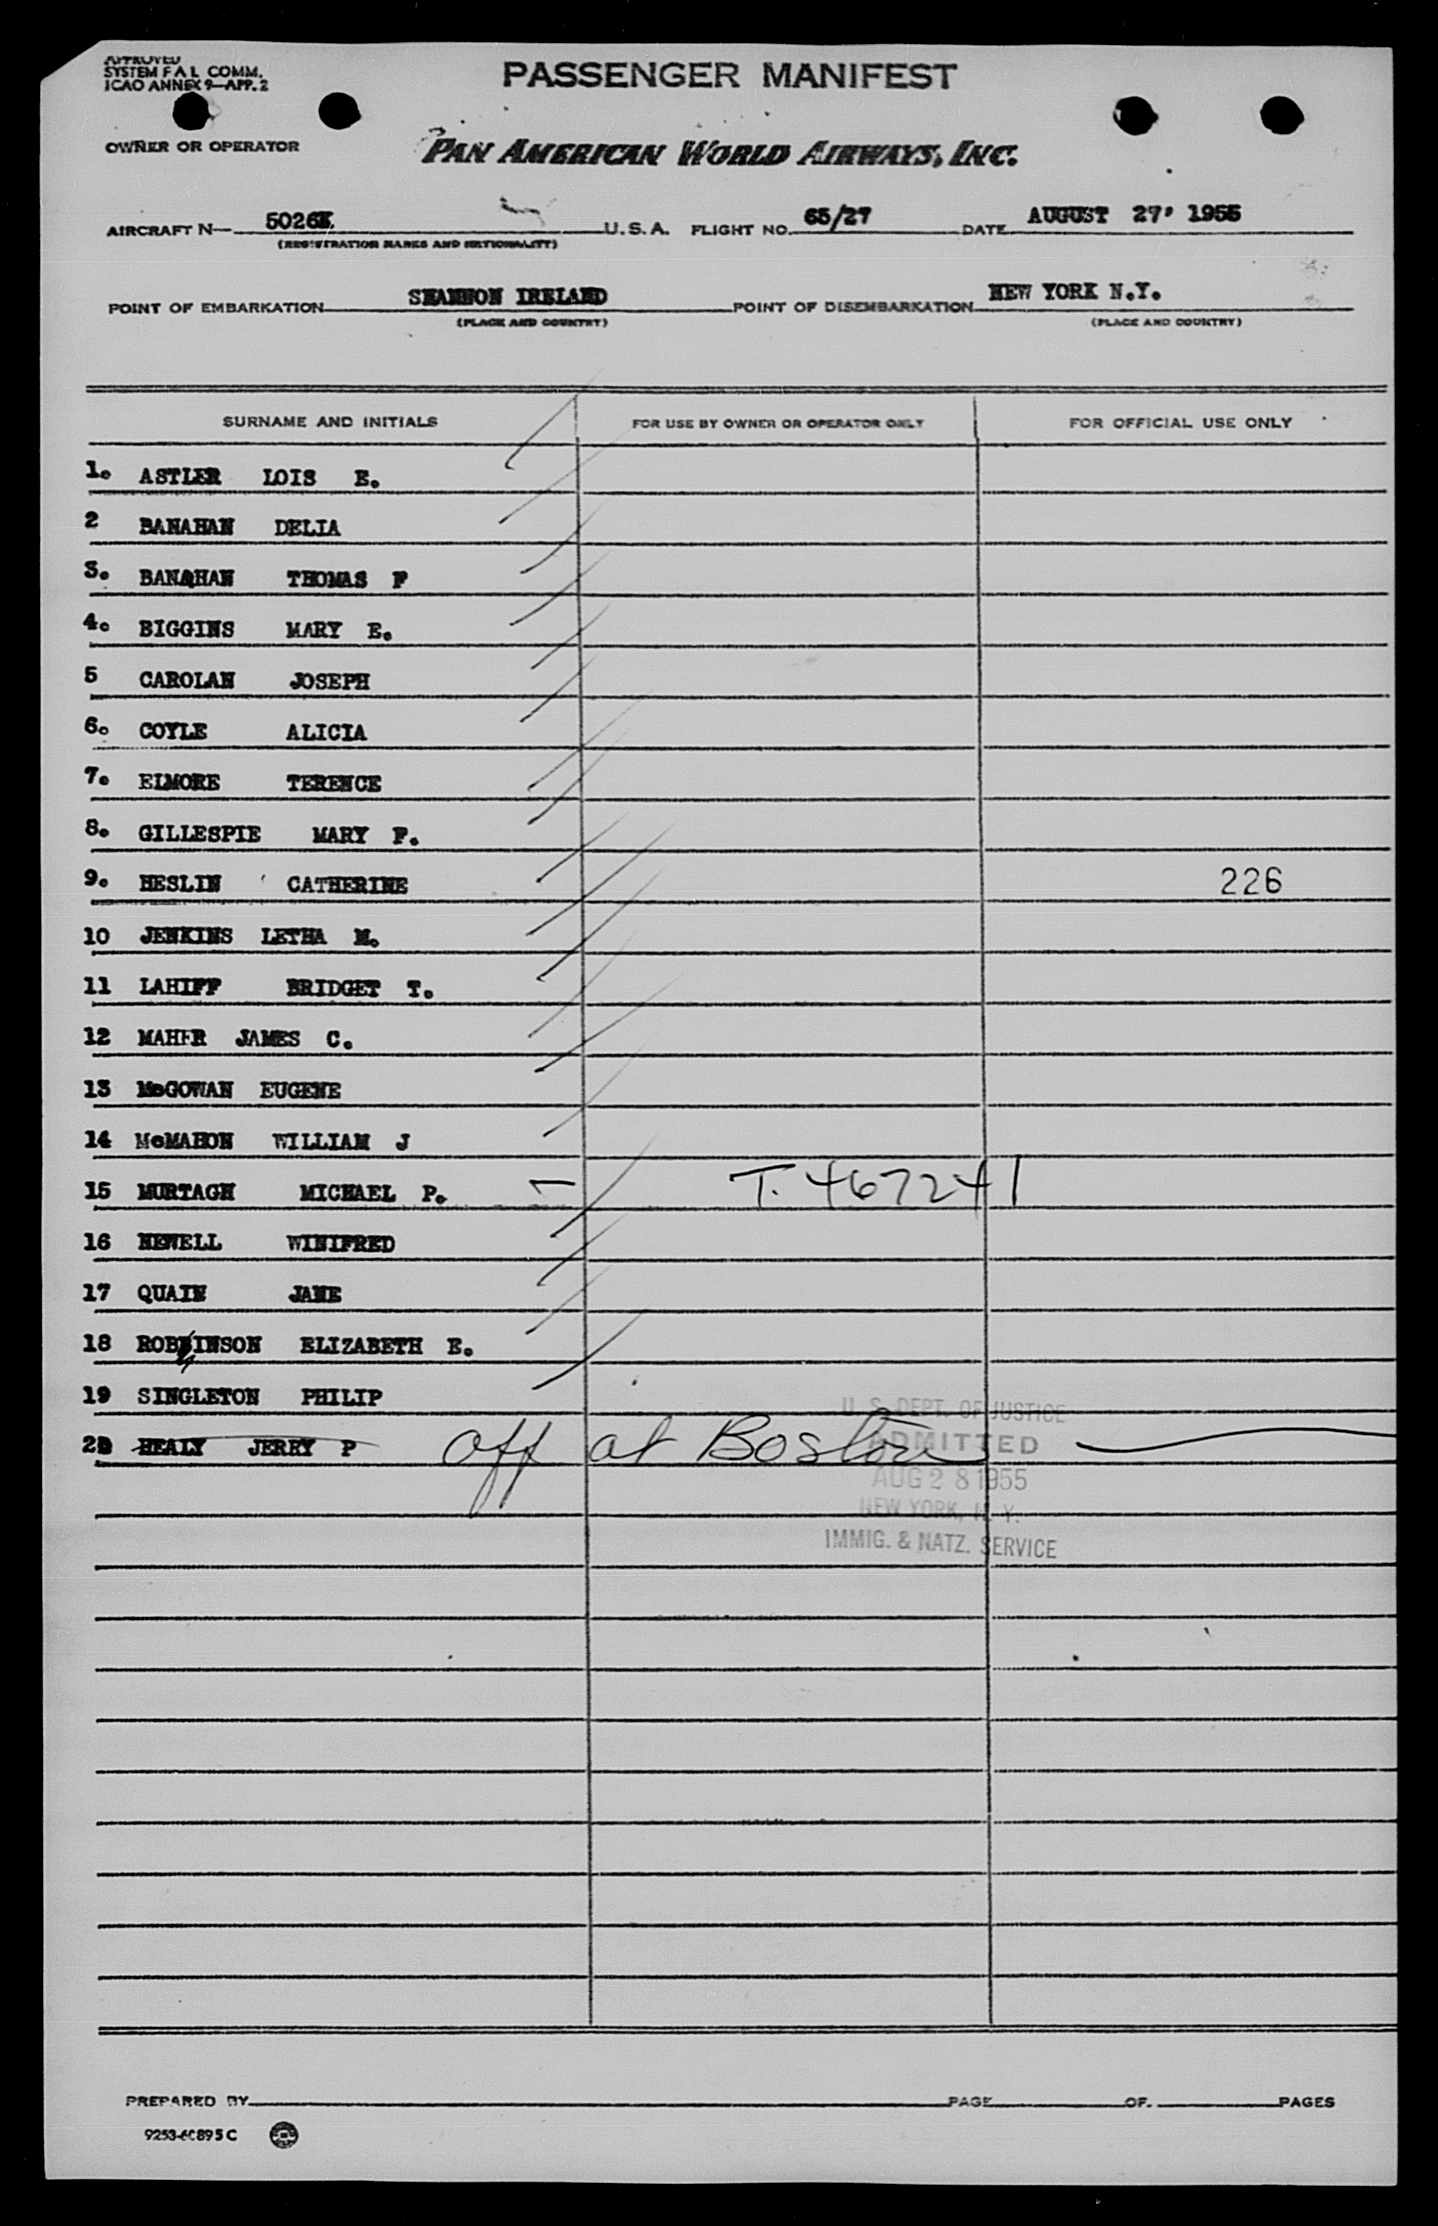 APPROVED
SYSTEM F A L COMM.
ICAO ANNEX 9—APP. 2
PASSENGER MANIFEST
OWNER OR OPERATOR
PAN AMERICAN WORLD AIRWAYS, INC.
AIRCRAFT N— 5026K. U. S. A. FLIGHT NO. 65/27 DATE AUGUST 27, 1955
(REGISTRATION MARKS AND NATIONALITY)
POINT OF EMBARKATION SHANNON IRELAND POINT OF DISEMBARKATION NEW YORK N.Y.
(PLACE AND COUNTRY) (PLACE AND COUNTRY)
SURNAME AND INITIALS FOR USE BY OWNER OR OPERATOR ONLY FOR OFFICIAL USE ONLY
1. ASTLER LOIS E.
2 BANAHAN DELIA
3. BANAHAN THOMAS F
4. BIGGINS MARY E.
5 CAROLAN JOSEPH
6. COYLE ALICIA
7. ELMORE TERENCE
8. GILLESPIE MARY F.
9. HESLIN CATHERINE 226
10 JENKINS LETHA M.
11 LAHIFF BRIDGET T.
12 MAHER JAMES C.
13 McGOWAN EUGENE
14 McMAHON WILLIAM J
15 MURTAGH MICHAEL P. T. 467241
16 NEWELL WINIFRED
17 QUAIN JANE
18 ROBINSON ELIZABETH E.
19 SINGLETON PHILIP
U. S. DEPT. OF JUSTICE
20 HEALY JERRY P off at Boston
ADMITTED
AUG 28 1955
NEW YORK, N. Y.
IMMIG. & NATZ. SERVICE
PREPARED BY PAGE OF PAGES
9253-60895 C